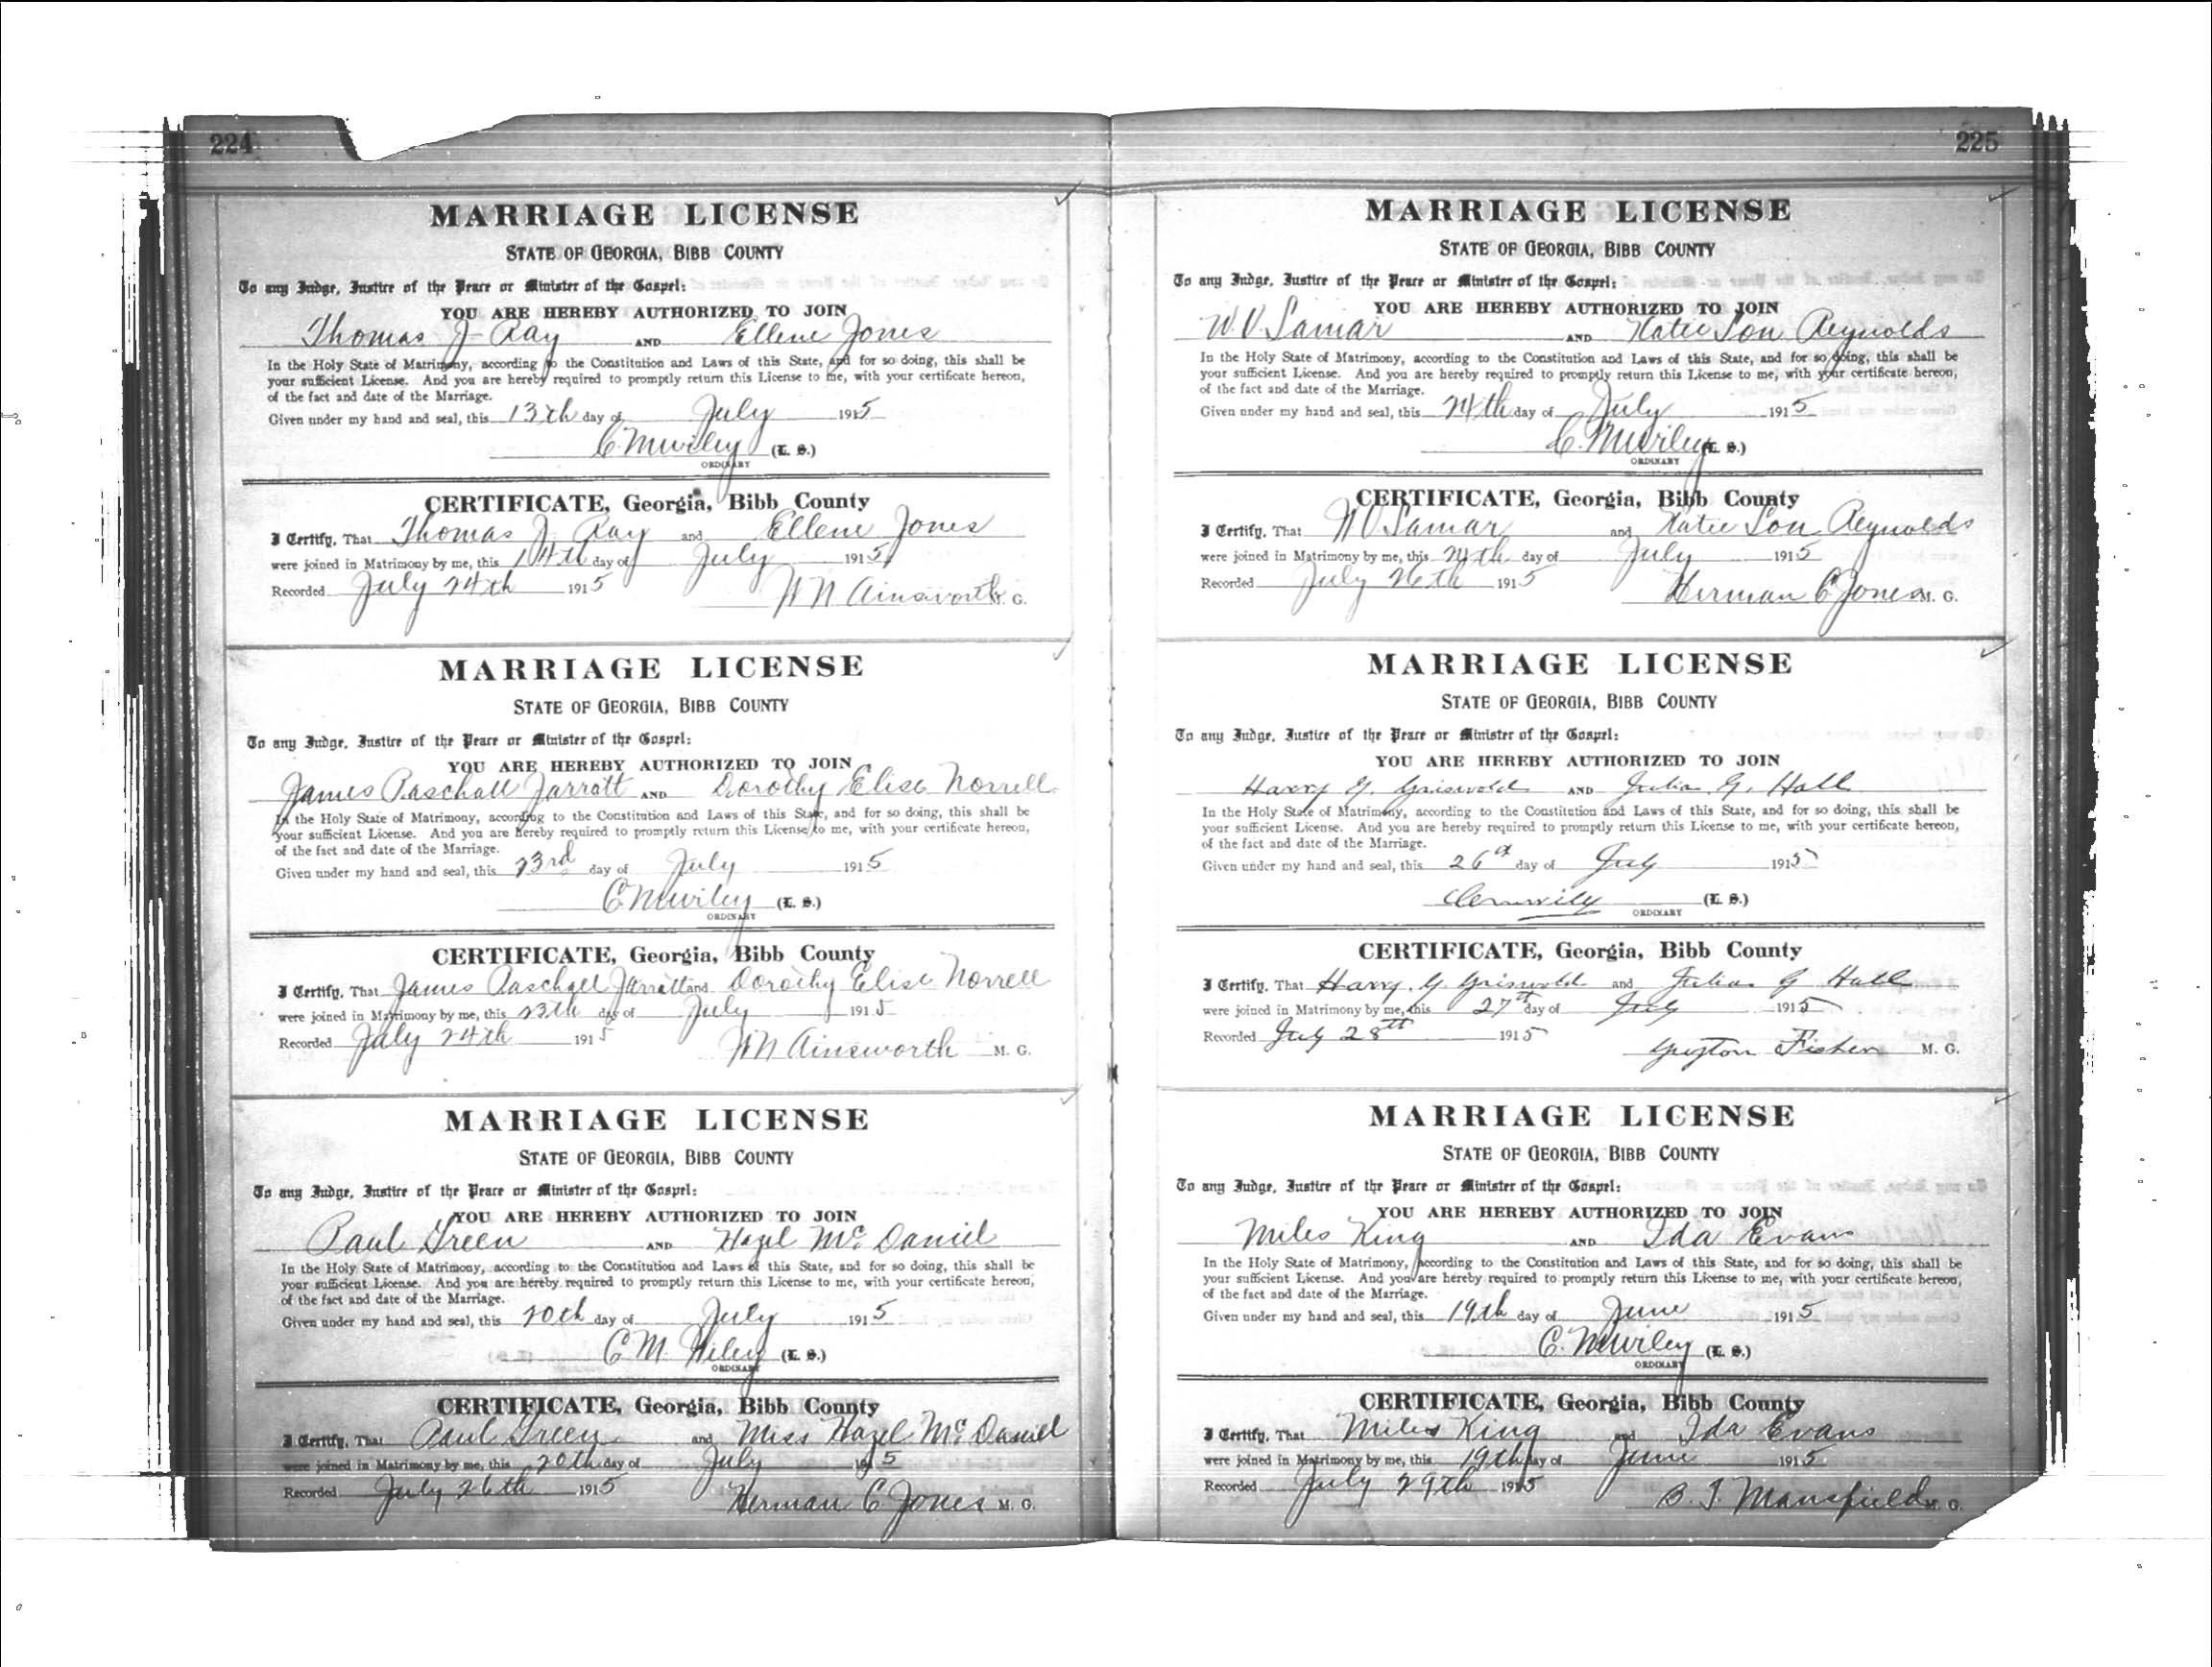 224
MARRIAGE LICENSE
STATE OF GEORGIA, BIBB COUNTY
To any Judge, Justice of the Peace or Minister of the Gospel:
YOU ARE HEREBY AUTHORIZED TO JOIN
Thomas J Ray AND Ellene Jones
In the Holy State of Matrimony, according to the Constitution and Laws of this State, and for so doing, this shall be
your sufficient License. And you are hereby required to promptly return this License to me, with your certificate hereon,
of the fact and date of the Marriage.
Given under my hand and seal, this 13th day of July 1915
C. M Wiley (L. S.)
ORDINARY
CERTIFICATE, Georgia, Bibb County
I Certify, That Thomas J. Ray and Ellene Jones
were joined in Matrimony by me, this 14th day of July 1915
Recorded July 24th 1915 W N Ainsworth M. G.
MARRIAGE LICENSE
STATE OF GEORGIA, BIBB COUNTY
To any Judge, Justice of the Peace or Minister of the Gospel:
YOU ARE HEREBY AUTHORIZED TO JOIN
James Paschall Jarratt AND Dorothy Elise Norrell
In the Holy State of Matrimony, according to the Constitution and Laws of this State, and for so doing, this shall be
your sufficient License. And you are hereby required to promptly return this License to me, with your certificate hereon,
of the fact and date of the Marriage.
Given under my hand and seal, this 23rd day of July 1915
C. M Wiley (L. S.)
ORDINARY
CERTIFICATE, Georgia, Bibb County
I Certify, That James Paschall Jarratt and Dorothy Elise Norrell
were joined in Matrimony by me, this 23th day of July 1915
Recorded July 24th 1915 W N Ainsworth M. G.
MARRIAGE LICENSE
STATE OF GEORGIA, BIBB COUNTY
To any Judge, Justice of the Peace or Minister of the Gospel:
YOU ARE HEREBY AUTHORIZED TO JOIN
Paul Green AND Hazel Mc Daniel
In the Holy State of Matrimony, according to the Constitution and Laws of this State, and for so doing, this shall be
your sufficient License. And you are hereby required to promptly return this License to me, with your certificate hereon,
of the fact and date of the Marriage.
Given under my hand and seal, this 20th day of July 1915
C. M. Wiley (L. S.)
ORDINARY
CERTIFICATE, Georgia, Bibb County
I Certify, That Paul Green and Miss Hazel Mc Daniel
were joined in Matrimony by me, this 20th day of July 1915
Recorded July 26th 1915 Herman C Jones M. G.
225
MARRIAGE LICENSE
STATE OF GEORGIA, BIBB COUNTY
To any Judge, Justice of the Peace or Minister of the Gospel:
YOU ARE HEREBY AUTHORIZED TO JOIN
W. O. Lamar AND Katie Lou Reynolds
In the Holy State of Matrimony, according to the Constitution and Laws of this State, and for so doing, this shall be
your sufficient License. And you are hereby required to promptly return this License to me, with your certificate hereon,
of the fact and date of the Marriage.
Given under my hand and seal, this 24th day of July 1915
C. M Wiley (L. S.)
ORDINARY
CERTIFICATE, Georgia, Bibb County
I Certify, That W O Lamar and Katie Lou Reynolds
were joined in Matrimony by me, this 24th day of July 1915
Recorded July 26th 1915 Herman C Jones M. G.
MARRIAGE LICENSE
STATE OF GEORGIA, BIBB COUNTY
To any Judge, Justice of the Peace or Minister of the Gospel:
YOU ARE HEREBY AUTHORIZED TO JOIN
Harry G. Griswold AND Julia G. Hall
In the Holy State of Matrimony, according to the Constitution and Laws of this State, and for so doing, this shall be
your sufficient License. And you are hereby required to promptly return this License to me, with your certificate hereon,
of the fact and date of the Marriage.
Given under my hand and seal, this 26th day of July 1915
C. M Wiley (L. S.)
ORDINARY
CERTIFICATE, Georgia, Bibb County
I Certify, That Harry. G. Griswold and Julia G Hall
were joined in Matrimony by me, this 27th day of July 1915
Recorded July 28th 1915 Guyton Fisher M. G.
MARRIAGE LICENSE
STATE OF GEORGIA, BIBB COUNTY
To any Judge, Justice of the Peace or Minister of the Gospel:
YOU ARE HEREBY AUTHORIZED TO JOIN
Miles King AND Ida Evans
In the Holy State of Matrimony, according to the Constitution and Laws of this State, and for so doing, this shall be
your sufficient License. And you are hereby required to promptly return this License to me, with your certificate hereon,
of the fact and date of the Marriage.
Given under my hand and seal, this 19th day of June 1915
C. M Wiley (L. S.)
ORDINARY
CERTIFICATE, Georgia, Bibb County
I Certify, That Miles King and Ida Evans
were joined in Matrimony by me, this 19th day of June 1915
Recorded July 29th 1915 B. J. Mansfield M. G.